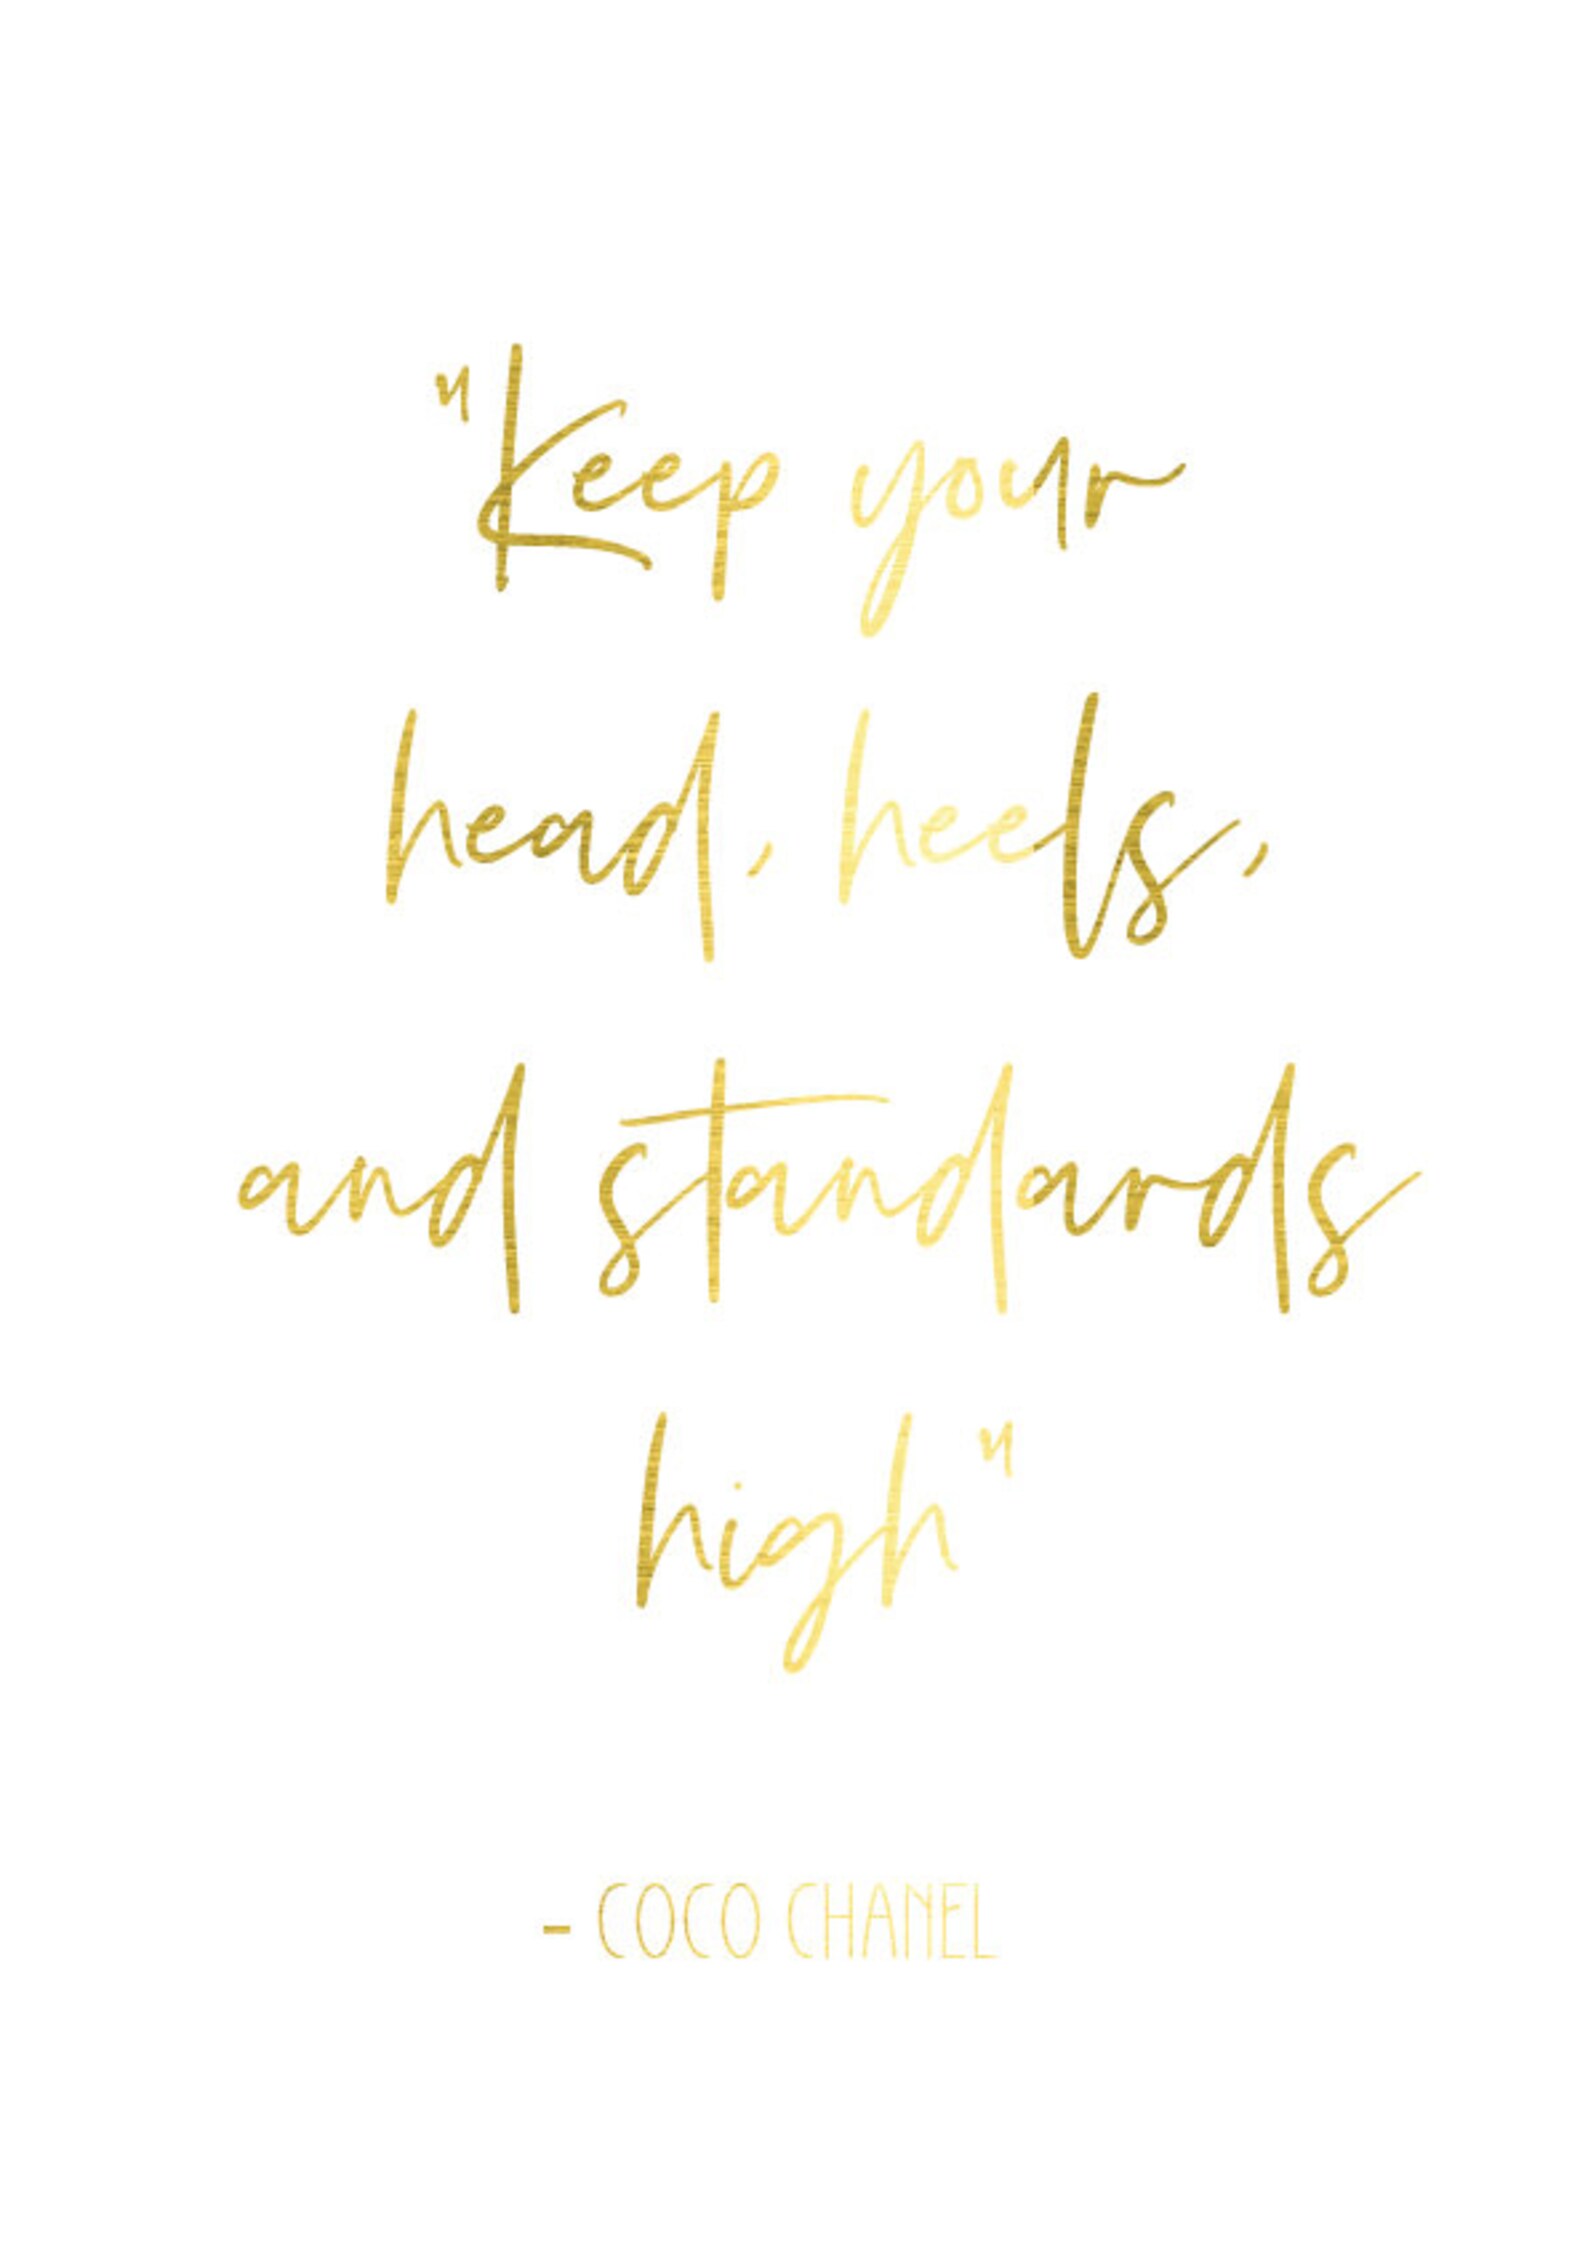 "Keep your
head, heels,
and standards
high"
- COCO CHANEL